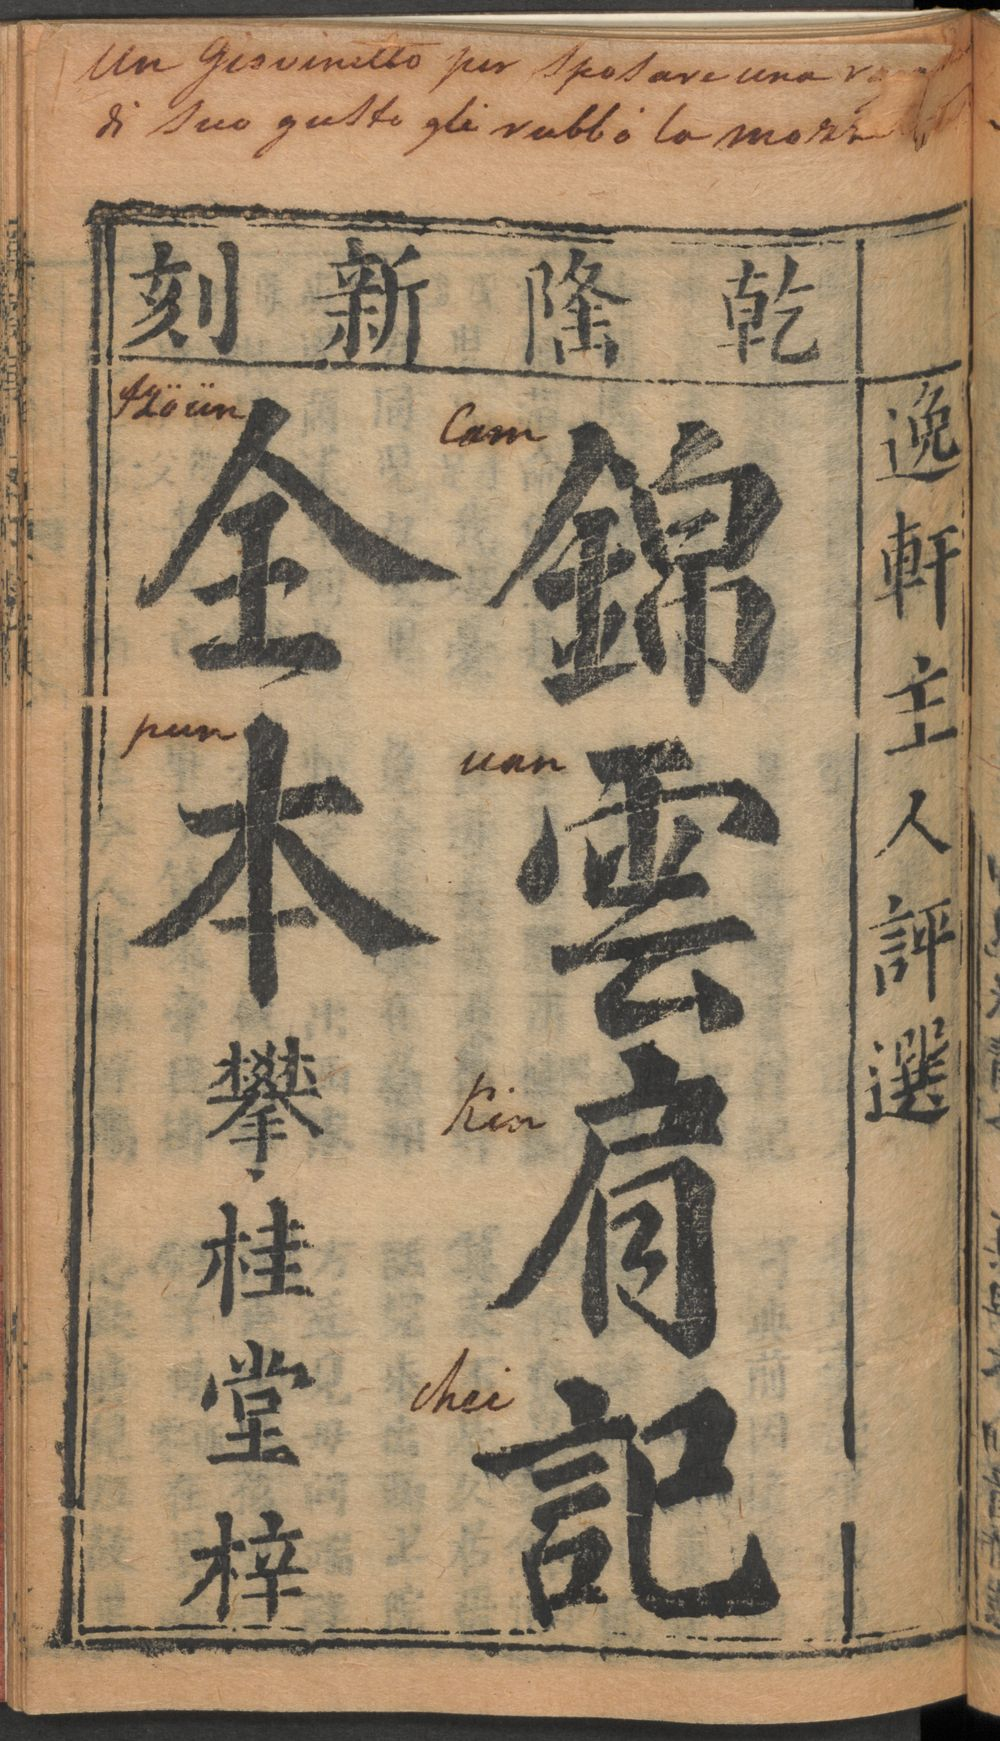 Un Giovinetto per sposare una
di suo gusto gli rubbò la
乾隆新刻
逸軒主人評選
錦雲肩記
Cam
uan
Kin
chei
全本
pun
攀桂堂梓